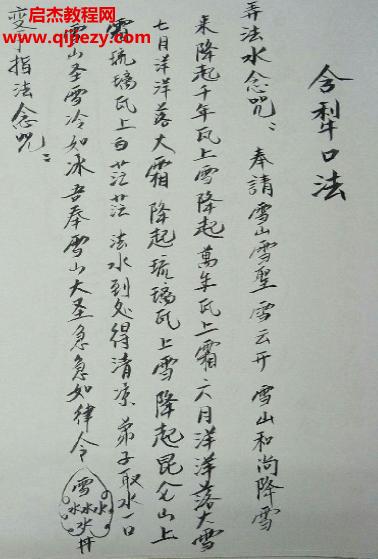 启杰教程网
www.qijiezy.com
含犁口法
弄法水念咒：奉請雪山雪聖雪云开雪山和尚降雪
来降起千年瓦上雪降起萬年瓦上霜六月洋洋落大雪
七月洋洋落大霜降起琉璃瓦上雪降起昆仑山上
霜琉璃瓦上白茫茫法水到处得清凉弟子取水一口
雪山圣雪冷如冰吾奉雪山大圣急急如律令雪水水水水井
变手指法念咒：